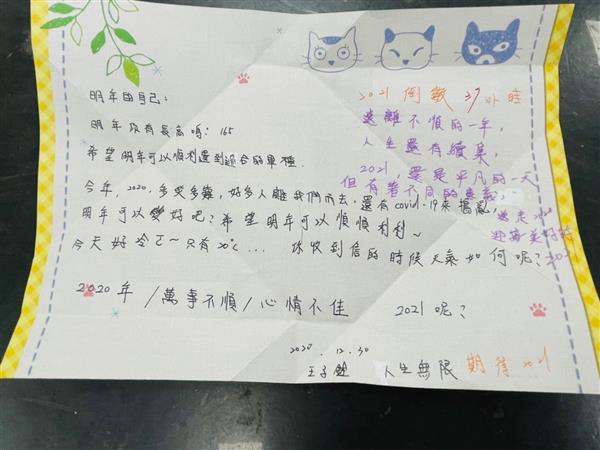 明年的自己:
明年你有長高嗎: 165
希望明年可以順利選到適合的單種.
今年, 2020, 多災多難, 好多人離我們而去, 還有covid-19來搗亂,
明年可以變好吧? 希望明年可以順順利利~
今天好冷ㄛ~只有20℃... 你收到信的時候天氣如何呢?
2020年/萬事不順/心情不佳 2021呢?
2020.12.30
王子 人生無限 期待2021
2021 倒數 37小時
遠離不順的一年,
人生還有續集,
2021, 還是平凡的一天
但有著不同的意義...
送走
迎接美好的
2021